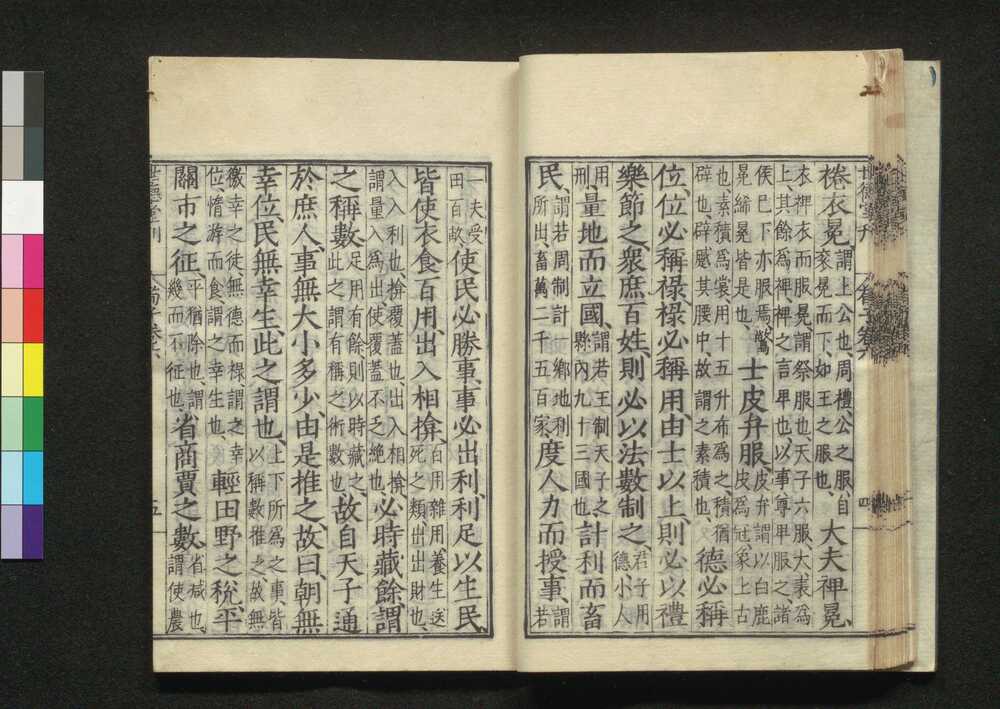 世德堂刊 荀子卷六 四
裷衣冕、謂上公也、周禮、公之服自袞冕而下、如王之服也、大夫裨冕、
衣裨衣而服冕、謂祭服也、天子六服大裘爲上、其餘爲裨、裨之言卑也、以事尊卑服之、諸
侯已下亦服焉、鷩冕絺冕皆是也、士皮弁服、皮弁謂以白鹿皮爲冠、象上古
也、素積爲裳、用十五升布爲之、積猶辟也、辟蹙其腰中、故謂之素積也、德必稱
位、位必稱祿、祿必稱用、由士以上則必以禮
樂節之、衆庶百姓、則必以法數制之、君子用德小人
用刑、量地而立國、謂若王制天子之縣內九十三國也、計利而畜
民、謂若周制計一鄉地利所出、畜萬二千五百家、度人力而授事、謂若
一夫受田百畝、使民必勝事、事必出利、利足以生民、
皆使衣食百用、出入相揜、百用雜用養生送死之類、出出財也、
入入利也、揜、覆蓋也、出入相揜、謂量入爲出、使覆蓋不乏絕也、必時藏餘、謂
之稱數、足用有餘、則以時藏之、此之謂有稱之術數也、故自天子通
於庶人、事無大小多少、由是推之、故曰、朝無
幸位、民無幸生、此之謂也、上下所爲之事、皆以稱數推之、故無
徼幸之徒、無德而祿、謂之幸位、惰游而食、謂之幸生也、輕田野之稅、平
關市之征、平猶除也、謂幾而不征也、省商賈之數、省減也、謂使農
世德堂刊 荀子卷六 五